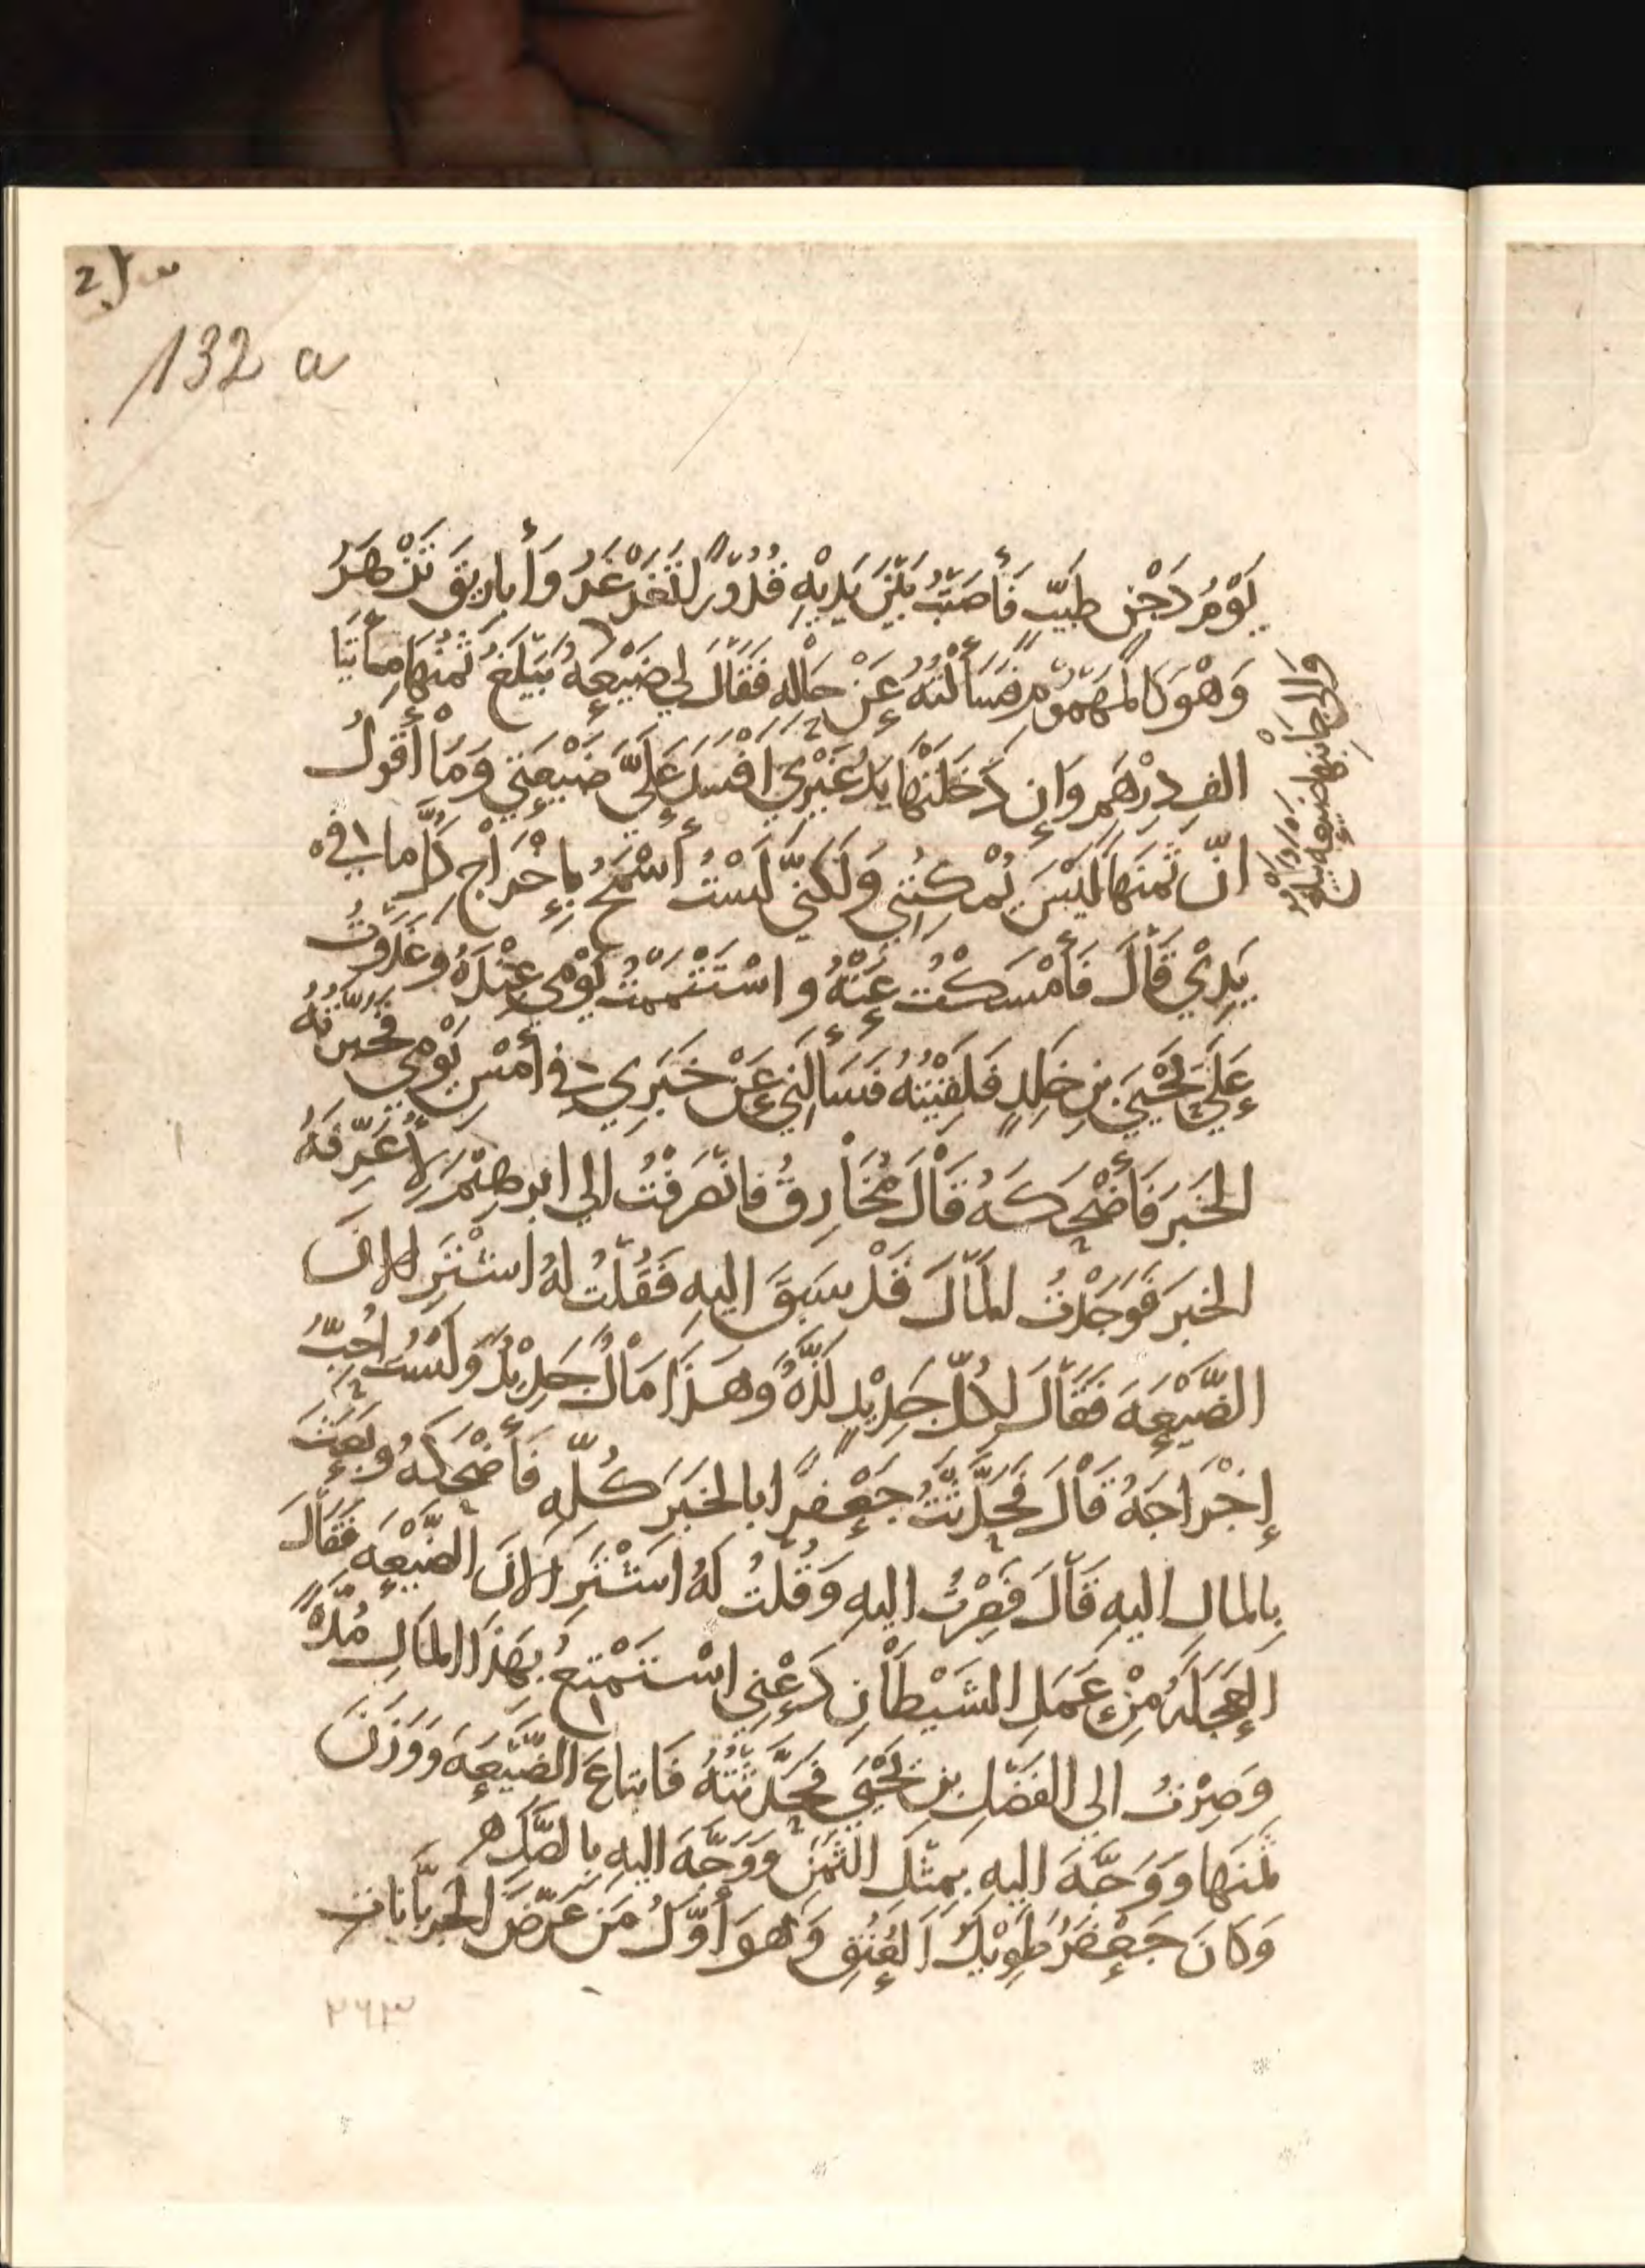 132 a
يَوْمُ دَجْنٍ طَيِّبٌ فَأَصَبْتُ بَيْنَ يَدَيْهِ قُدُورًا تُغَرْغَرُ وَأَبَارِيقَ تَزْهَرُ
وَهْوَ كَالْمَهْمُومِ فَسَأَلْتُهُ عَنْ حَالِهِ فَقَالَ لِي ضَيْعَةٌ يَبْلُغُ ثَمَنُهَا مِأَتَيْ
الف دِرْهَمٍ وَاِن دَخَلَتْهَا يَدُ غَيْرِي أَفْسَدَ عَلَيَّ ضَيْعَتِي وَمَا أَقُولُ
اِنَّ ثَمَنَهَا لَيْسَ يُمْكِنُنِي وَلَكِنِّي لَسْتُ أَسْمَحُ بِإِخْرَاجِ كُلِّ مَا فِي
يَدِي قَالَ فَأَمْسَكْتُ عَنْهُ وَاسْتَتْمَمْتُ يَوْمِي عِنْدَهُ وَغَدَوْتُ
عَلَى يَحْيَى بنِ خَلِدٍ فَلَقِيتُهُ فَسَأَلَنِي عَنْ خَبَرِي فِي أَمْسِ يَوْمِي فَخَبَّرْتُهُ
الخَبَرَ فَأَضْحَكَهُ قَالَ مُخَارِقٌ فَانْصَرَفْتُ الي ابرهِيْمَ لِأُعَرِّفَهُ
الخبَرَ فَوَجَدْتُ المَالَ قَدْ سَبَقَ اليهِ فَقُلْتُ لَهُ اشْتَرِ الانَ
الضَّيْعَةَ فَقَالَ لِكُلِّ جَدِيْدٍ لَذَّةٌ وَهَذَا مَالٌ جَدِيْدٌ وَلَسْتُ اُحِبُّ
إِخْرَاجَهُ قَالَ فَحَدَّثْتُ جَعْفَرًا بالخَبَرِ كُلِّهِ فَأَضْحَكَهُ وبَعَثَ
بِالمَالِ اليهِ قَالَ فَصِرْتُ اليهِ وَقُلتُ لَهُ اشْتَرِ الانَ الضَّيْعَةَ فَقَالَ
العَجَلَةُ مِنْ عَمَلِ الشَيْطَانِ دَعْنِي اسْتَمْتِعُ بِهَذَا المَالِ مُدَّةً
وَصِرْتُ الي الفَضْلِ بنِ يَحْيَى فَحَدَّثْتُهُ فَابتاعَ الضَّيْعَةَ وَوَزَنَ
ثَمَنَهَا وَوَجَّهَ اليهِ بِمِثْلِ الثَّمَنِ وَوَجَّهَ اليهِ بِالصَّكِّ ه
وَكَانَ جَعْفَرُ طَوِيْلَ العُنُقِ وَهُوَ أَوَّلُ مَن عَرَّضَ الجرُبَّانَات
٢٦٣